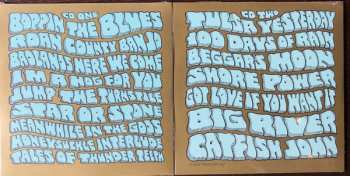 CD ONE
BOPPIN THE BLUES
ROAN COUNTY BANJO
BAHAMAS HERE WE COME
I'M A HOG FOR YOU
JUMP THE TURNSTYLE
STAR OR STONE
MEANWHILE IN THE GODS
HONEYSUCKLE INTERLUDE
TALES OF THUNDER
CD TWO
TULSA YESTERDAY
100 DAYS OF RAIN
BEGGARS MOON
SHORE POWER
GOT LOVE IF YOU WANT IT
BIG RIVER
CATFISH JOHN